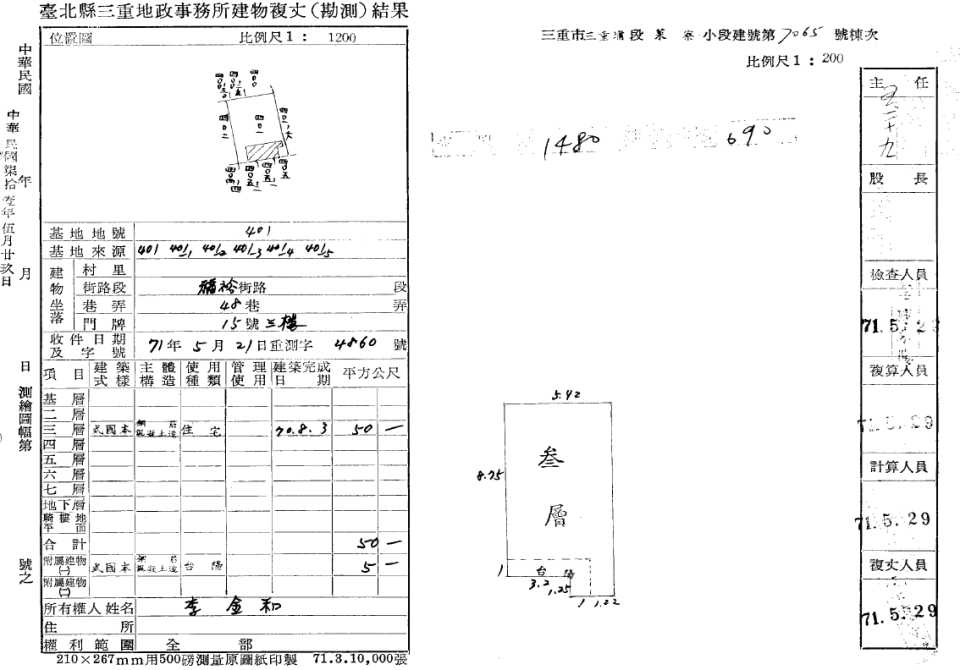 臺北縣三重地政事務所建物複丈(勘測)結果
位置圖 比例尺1: 1200
中華民國 年 月 日 測繪圖幅第 號之
中華民國柒拾壹年伍月廿玖日
四〇二
四〇一
基地地號 401
基地來源 401 401/1 401/2 401/3 401/4 401/5
建物坐落
村里
街路段 福裕街路 段
巷弄 48巷 弄
門牌 15號三樓
收件日期及字號 71年5月21日重測字 4860 號
項目 建築式樣 主體構造 使用種類 管理使用 建築完成日期 平方公尺
基層
二層
三層 本國式 鋼筋混凝土造 住宅 70.8.3 50 —
四層
五層
六層
七層
地下層
騎樓地平面
合計 50 —
附屬建物(一) 本國式 鋼筋混凝土造 陽台 5 —
附屬建物(二)
所有權人姓名 李金和
住所
權利範圍 全部
210×267mm用500磅測量原圖紙印製 71.3.10,000張
三重市三重埔段菜寮小段建號第7065號棟次
比例尺1: 200
1480 690
5.42
8.75
叁層
陽台
1
3.2
1.25
1 1.22
主任
股長
檢查人員
71.5.2
複算人員
71.5.29
計算人員
71.5.29
複丈人員
71.5.29